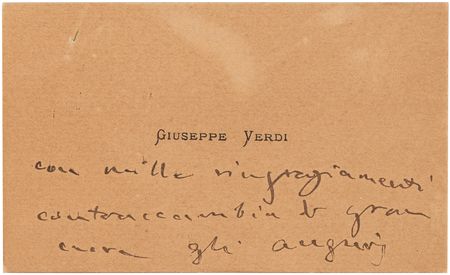 GIUSEPPE VERDI
con mille ringraziamenti
contraccambia di gran
cuore gli augurj